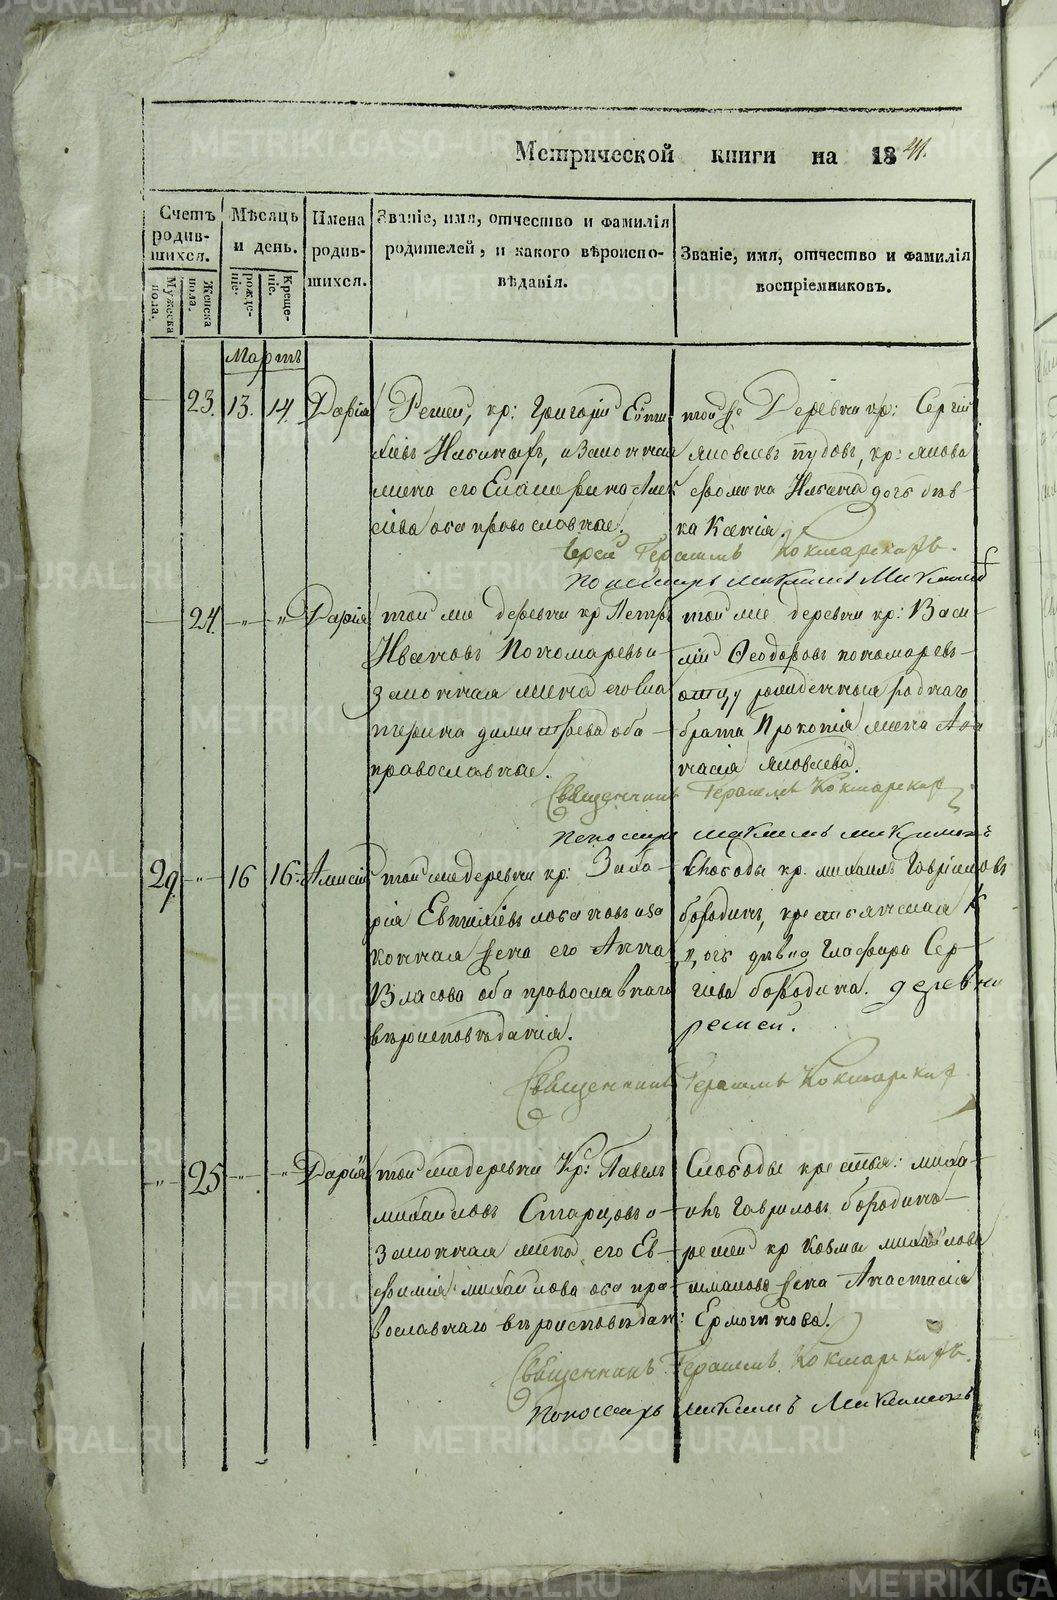 Метрической книги на 1841.
Счетъ родив-шихся.
Мужеска пола.
Женска пола.
Мѣсяцъ и день.
рожде-ніе.
Креще-ніе.
Имена родив-шихся.
Званіе, имя, отчество и фамилія
родителей, и какого вѣроиспо-
вѣданія.
Званіе, имя, отчество и фамилія
воспріемниковъ.
Мартъ
23. 13. 14. Дарія
кр: Григорій
и законная
жена его
оба православные.
той же Деревни кр: Сергій
Яковлевъ
дочь дѣв-
ка Ксенія.
Іерей Герасимъ Кокшарскій
Пономарь Максимъ
24. " " Дарія
той же деревни кр Петръ
Ивановъ Пономаревъ и
законная жена его Ека
терина Димитріева оба
православные.
той же деревни кр: Васи-
лій Ѳеодоровъ пономаревъ
отцу рожденныя роднаго
брата Прокопія жена Ана
стасія Яковлева.
Священникъ Герасимъ Кокшарскій
Пономарь Максимъ
29. " 16 16 Алексій
той же деревни кр: Заха-
рія и за
конная жена его Анна
Власова оба православнаго
вѣроисповѣданія.
Слободы кр. михаилъ Гавриловъ
бородинъ, крестьянская
дѣвка Глафира Сер-
гіева бородина. деревни
решей.
Священникъ Герасимъ Кокшарскій
" 25 " " Дарія
той же деревни Кр: Павелъ
михайловъ Старцовъ и
законная жена его Ев-
фимія михайлова оба пра-
вославнаго вѣроисповѣдан:
Слободы крестья: миха-
илъ Гавриловъ бородинъ
решей кр Козмы михайлова
жена Анастасія
Священникъ Герасимъ Кокшарскій
Пономарь Максимъ
METRIKI.GASO-URAL.RU